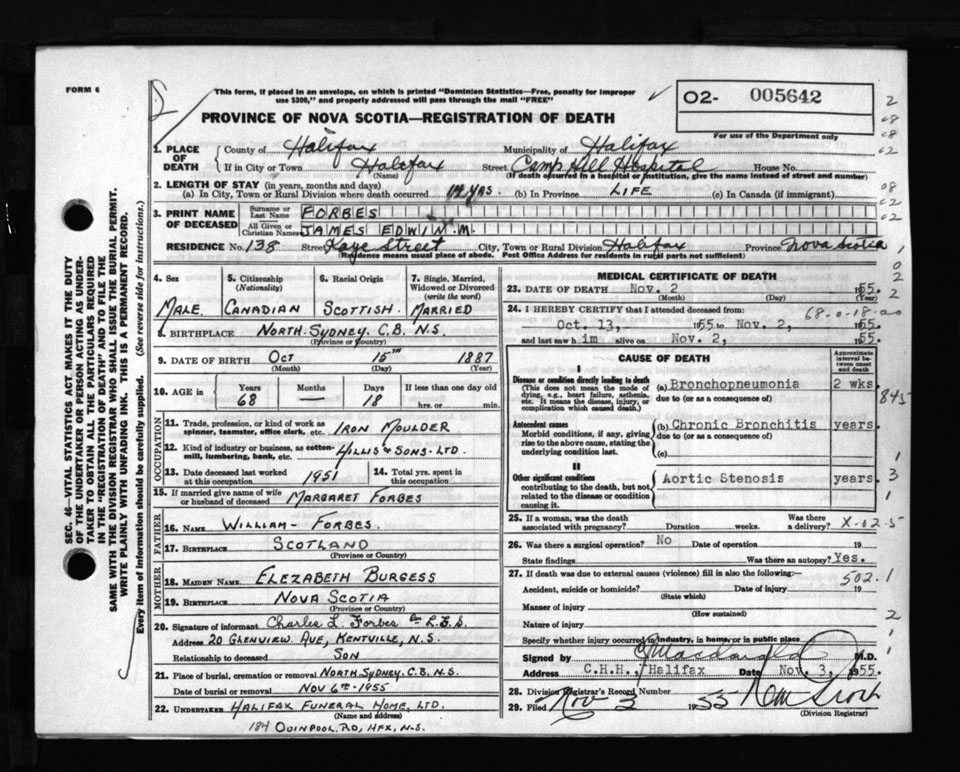 FORM 6
This form, if placed in an envelope, on which is printed "Dominion Statistics—Free, penalty for improper
use $300," and properly addressed will pass through the mail "FREE"
02- 005642
For use of the Department only
PROVINCE OF NOVA SCOTIA—REGISTRATION OF DEATH
1. PLACE OF DEATH
County of Halifax Municipality of Halifax
If in City or Town Halifax Street Camp Hill Hospital House No.
(Name) (If death occurred in a hospital or institution, give the name instead of street and number)
2. LENGTH OF STAY (in years, months and days)
(a) In City, Town or Rural Division where death occurred yrs. (b) In Province LIFE (c) In Canada (if immigrant)
3. PRINT NAME OF DECEASED
Surname or Last Name FORBES
All Given or Christian Names JAMES EDWIN M.
RESIDENCE No. 138 Street Kaye Street City, Town or Rural Division Halifax Province Nova Scotia
(Residence means usual place of abode. Post Office Address for residents in rural parts not sufficient)
4. Sex MALE
5. Citizenship (Nationality) CANADIAN
6. Racial Origin SCOTTISH
7. Single, Married, Widowed or Divorced (write the word) MARRIED
8. BIRTHPLACE NORTH SYDNEY C.B. N.S.
(Province or Country)
9. DATE OF BIRTH Oct 15TH 1887
(Month) (Day) (Year)
10. AGE in Years 68 Months — Days 18 If less than one day old hrs. or min.
OCCUPATION
11. Trade, profession, or kind of work as spinner, teamster, office clerk, etc. IRON MOULDER
12. Kind of industry or business, as cotton-mill, lumbering, bank, etc. HILLIS & SONS. LTD.
13. Date deceased last worked at this occupation 1951
14. Total yrs. spent in this occupation
15. If married give name of wife or husband of deceased MARGARET FORBES
FATHER
16. NAME WILLIAM- FORBES.
17. BIRTHPLACE SCOTLAND
(Province or Country)
MOTHER
18. MAIDEN NAME ELEZABETH BURGESS
19. BIRTHPLACE NOVA SCOTIA
(Province or Country)
20. Signature of informant Charles L. Forbes
Address 20 GLENVIEW AVE, KENTVILLE, N.S.
Relationship to deceased SON
21. Place of burial, cremation or removal NORTH SYDNEY C.B. N.S.
Date of burial or removal NOV 6TH-1955
22. UNDERTAKER HALIFAX FUNERAL HOME, LTD.
(Name and address)
184 QUINPOOL RD, HFX, N.S.
MEDICAL CERTIFICATE OF DEATH
23. DATE OF DEATH Nov. 2 1955.
(Month) (Day) (Year)
24. I HEREBY CERTIFY that I attended deceased from:
Oct. 13, 1955 to Nov. 2, 1955.
and last saw him alive on Nov. 2, 1955.
CAUSE OF DEATH
Approximate interval between onset and death
I
Disease or condition directly leading to death
(This does not mean the mode of dying, e.g., heart failure, asthenia, etc. It means the disease, injury, or complication which caused death.)
(a) Bronchopneumonia 2 wks.
due to (or as a consequence of)
Antecedent causes
Morbid conditions, if any, giving rise to the above cause, stating the underlying condition last.
(b) Chronic Bronchitis years.
due to (or as a consequence of)
(c)
II
Other significant conditions
contributing to the death, but not related to the disease or condition causing it.
Aortic Stenosis years.
845
25. If a woman, was the death associated with pregnancy? Duration weeks. Was there a delivery? X-02.5
26. Was there a surgical operation? No Date of operation 19
State findings Was there an autopsy? Yes.
27. If death was due to external causes (violence) fill in also the following:— 502.1
Accident, suicide or homicide? Date of injury 19
(State which)
Manner of injury
(How sustained)
Nature of injury
Specify whether injury occurred in industry, in home, or in public place
Signed by M.D.
Address C.H.H. Halifax Date Nov. 3, 1955.
28. Division Registrar's Record Number
29. Filed Nov 3 1955
(Division Registrar)
SEC. 46—VITAL STATISTICS ACT MAKES IT THE DUTY
OF THE UNDERTAKER OR PERSON ACTING AS UNDER-
TAKER TO OBTAIN ALL THE PARTICULARS REQUIRED
IN THE "REGISTRATION OF DEATH" AND TO FILE THE
SAME WITH THE DIVISION REGISTRAR WHO SHALL ISSUE THE BURIAL PERMIT.
WRITE PLAINLY WITH UNFADING INK. THIS IS A PERMANENT RECORD.
Every item of information should be carefully supplied. (See reverse side for instructions.)